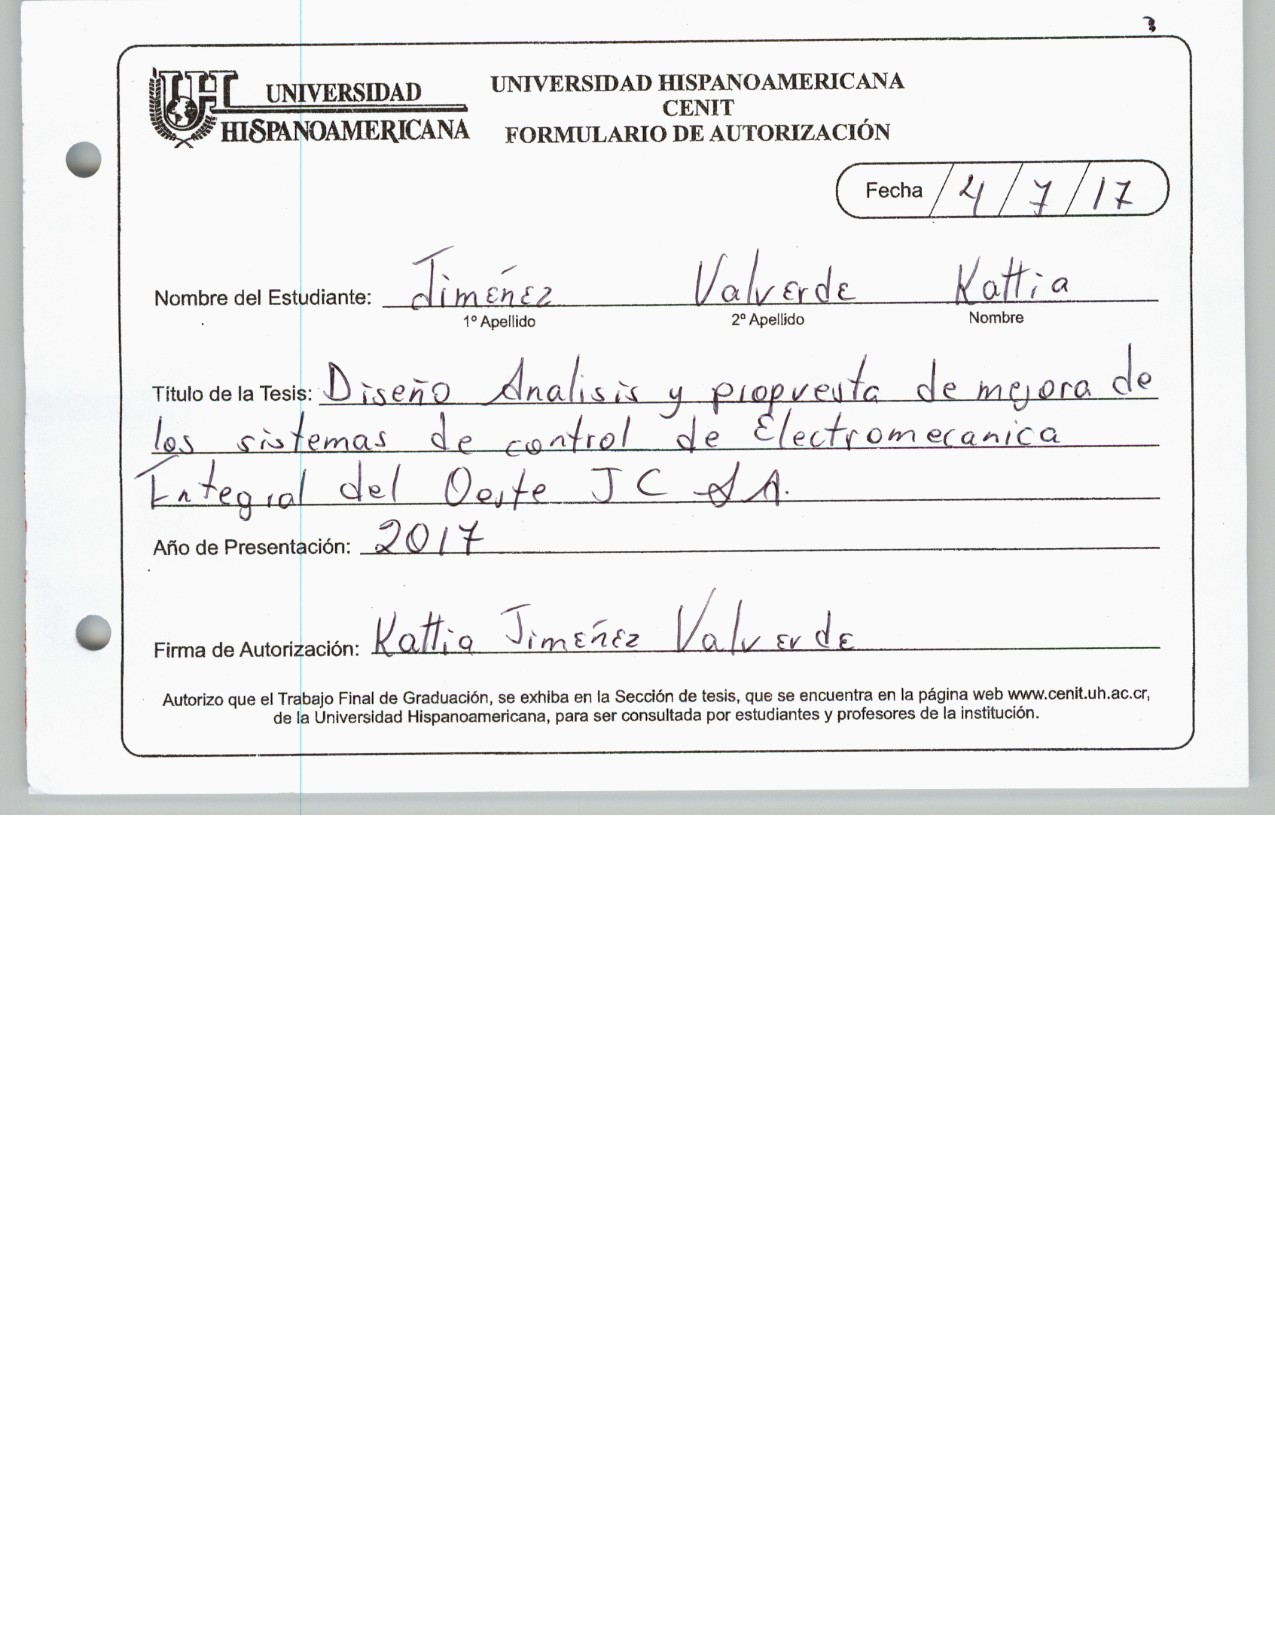 3
UNIVERSIDAD
HISPANOAMERICANA
UNIVERSIDAD HISPANOAMERICANA
CENIT
FORMULARIO DE AUTORIZACIÓN
Fecha / 4 / 7 / 17
Nombre del Estudiante: Jiméñez Valverde Kattia
1º Apellido 2º Apellido Nombre
Título de la Tesis: Diseño Analisis y propuesta de mejora de
los sistemas de control de Electromecanica
Integral del Oeste JC SA.
Año de Presentación: 2017
Firma de Autorización: Kattia Jiméñez Valverde
Autorizo que el Trabajo Final de Graduación, se exhiba en la Sección de tesis, que se encuentra en la página web www.cenit.uh.ac.cr,
de la Universidad Hispanoamericana, para ser consultada por estudiantes y profesores de la institución.